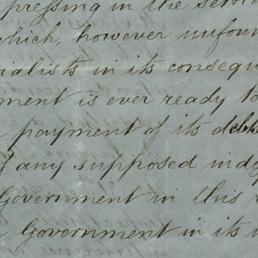 pressing in the
which, however unfoun
ialists in its consequ
ment is ever ready to
payment of its debts
f any supposed ind
Government in this
Government in its